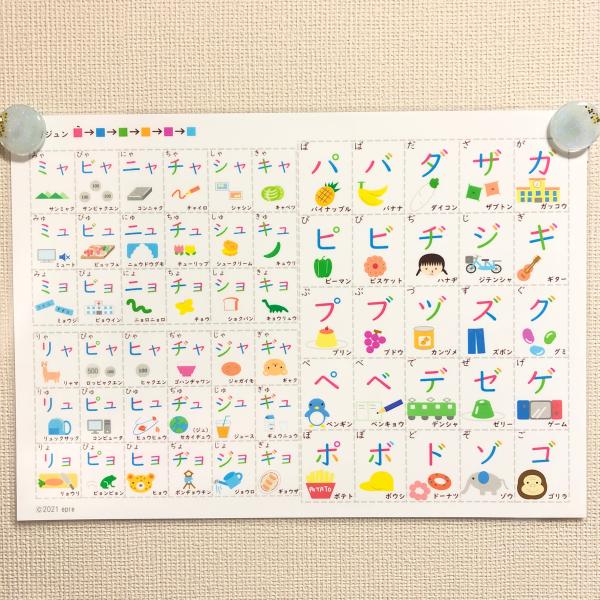 ジュン → → → → →
みゃ びゃ にゃ ちゃ しゃ きゃ
ミャ ビャ ニャ チャ シャ キャ
100 100 100
サンミャク サンビャクエン コンニャク チャイロ シャシン キャベツ
みゅ びゅ にゅ ちゅ しゅ きゅ
ミュ ビュ ニュ チュ シュ キュ
ミュート ビュッフェ ニュウドウグモ チューリップ シュークリーム キュウリ
みょ びょ にょ ちょ しょ きょ
ミョ ビョ ニョ チョ ショ キョ
ミョウジ ビョウイン ニョロニョロ チョウ ショクパン キョウリュウ
りゃ ぴゃ ひゃ ぢゃ じゃ ぎゃ
リャ ピャ ヒャ ヂャ ジャ ギャ
500 100 100
リャマ ロッピャクエン ヒャクエン ゴハンヂャワン ジャガイモ ギャグ
りゅ ぴゅ ひゅ ぢゅ じゅ ぎゅ
リュ ピュ ヒュ ヂュ ジュ ギュ
(ジュ)
リュックサック コンピュータ ヒュウヒュウ セカイヂュウ ジュース ギュウニュウ
りょ ぴょ ひょ ぢょ じょ ぎょ
リョ ピョ ヒョ ヂョ ジョ ギョ
リョウリ ピョンピョン ヒョウ ボンヂョウチン ジョウロ ギョウザ
ぱ ば だ ざ が
パ バ ダ ザ ガ
パイナップル バナナ ダイコン ザブトン ガッコウ
ぴ び ぢ じ ぎ
ピ ビ ヂ ジ ギ
ピーマン ビスケット ハナヂ ジテンシャ ギター
ぷ ぶ づ ず ぐ
プ ブ ヅ ズ グ
プリン ブドウ カンヅメ ズボン グミ
ぺ べ で ぜ げ
ペ ベ デ ゼ ゲ
ペンギン ベンキョウ デンシャ ゼリー ゲーム
ぽ ぼ ど ぞ ご
ポ ボ ド ゾ ゴ
POTATO
ポテト ボウシ ドーナツ ゾウ ゴリラ
©2021 epre